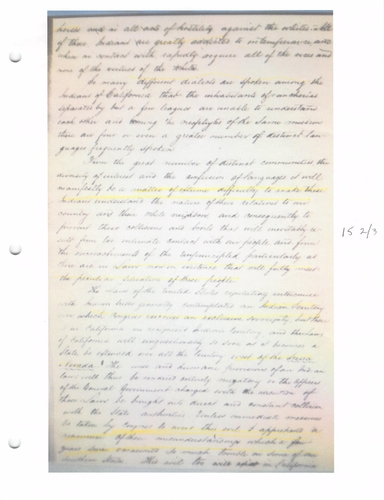 horses and in all acts of hostility against the whites. All
of these Indians are greatly addicted to intemperance and
when in contact with rapidly acquire all of the vices and
none of the virtues of the white.
So many different dialects are spoken among the
Indians of California that the inhabitants of rancherias
separated by but a few leagues are unable to understand
each other and among the neophytes of the same mission
there are four or even a greater number of distinct lan-
guages frequently spoken.
From the great number of distinct communities the
diversity of interest and the confusion of languages it will
manifestly be a matter of extreme difficulty to make these
Indians understand the nature of their relations to our
country and their white neighbors and consequently to
prevent those collisions and broils that will inevitably
from too intimate contact with our people and from
the encroachments of the particularly as
there are no laws now in existence that will fully meet
the peculiar situation of these people.
The laws of the United States regulating intercourse
with Indian tribes generally contemplate an Indian Territory
over which Congress exercises an exclusive sovereignty, but there
is in California no recognized Indian territory and the laws
of California will unquestionably as soon as it becomes a
State be extended over all the territory west of the Sierra
Nevada. The wise and humane provisions of an Indian
law will then be rendered entirely nugatory or the officers
of the General Government charged with the execution of
those laws be brought into direct and constant collision
with the State authorities. Unless immediate measures
be taken by Congress to avert this evil I apprehend a
recurrence of those misunderstandings which a few
years since occasioned so much trouble in some of our
southern States. This evil too will in California
15 2/3